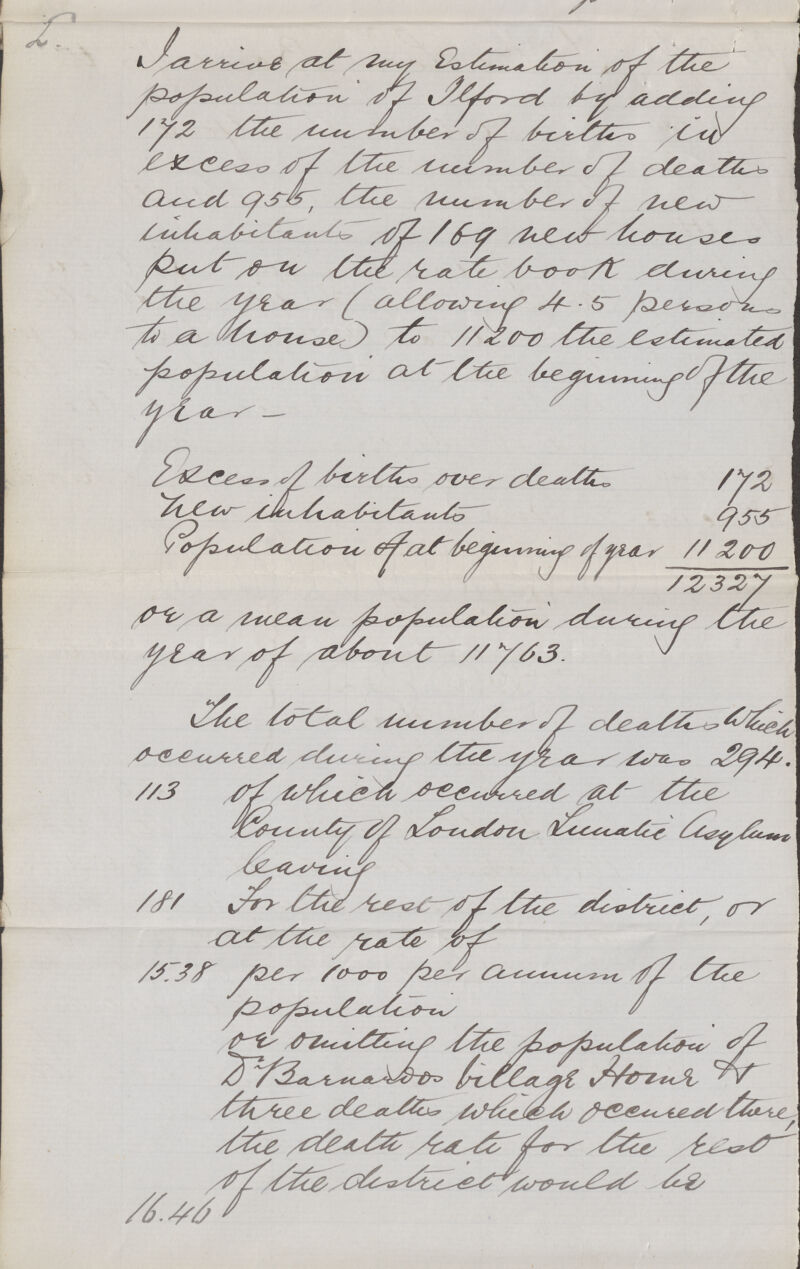 2.
I arrive at my Estimation of the
population of Ilford by adding
172 the number of births in
excess of the number of deaths
and 955, the number of new
inhabitants of 169 new houses
put on the rate book during
the year (allowing 4.5 persons
to a house) to 11200 the estimated
population at the beginning of the
year –
Excess of births over deaths 172
New inhabitants 955
Population at beginning of year 11 200
12327
or a mean population during the
year of about 11763.
The total number of deaths which
occurred during the year was 294.
113 of which occurred at the
County of London Lunatic Asylum
leaving
181 For the rest of the district, or
at the rate of
15.38 per 1000 per annum of the
population
or omitting the population of
Dr Barnardos Village Home &
three deaths which occured there,
the death rate for the rest
of the district would be
16.46